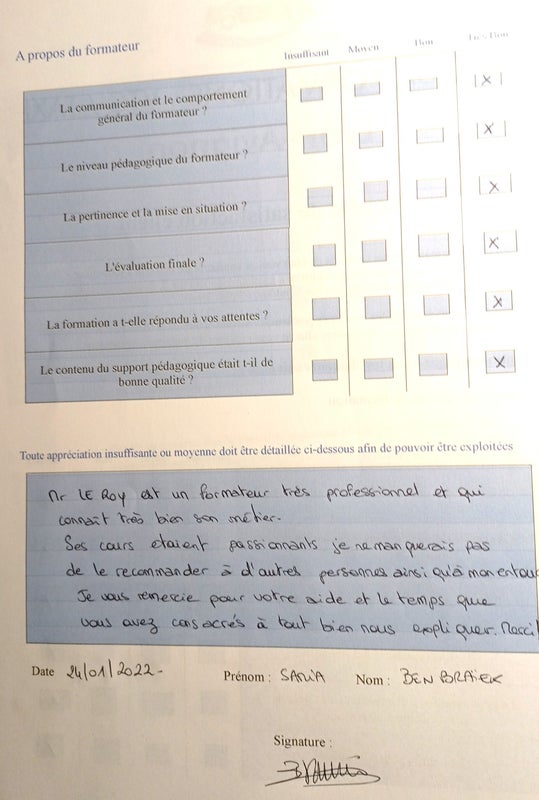 A propos du formateur
Insuffisant Moyen Bon Très Bon
La communication et le comportement
général du formateur ? X
Le niveau pédagogique du formateur ? X
La pertinence et la mise en situation ? X
L'évaluation finale ? X
La formation a t-elle répondu à vos attentes ? X
Le contenu du support pédagogique était t-il de
bonne qualité ? X
Toute appréciation insuffisante ou moyenne doit être détaillée ci-dessous afin de pouvoir être exploitées
Mr LE ROY est un formateur très professionnel et qui
connaît très bien son métier.
Ses cours étaient passionnants je ne manquerais pas
de le recommander à d'autres personnes ainsi qu'à mon entou
Je vous remercie pour votre aide et le temps que
vous avez consacrés à tout bien nous expliquer. Merci!
Date 24/01/2022- Prénom : SANIA Nom : BEN BRAIEK
Signature :